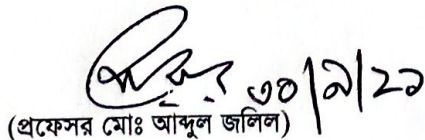 ৩০|৯|২১
(প্রফেসর মোঃ আব্দুল জলিল)